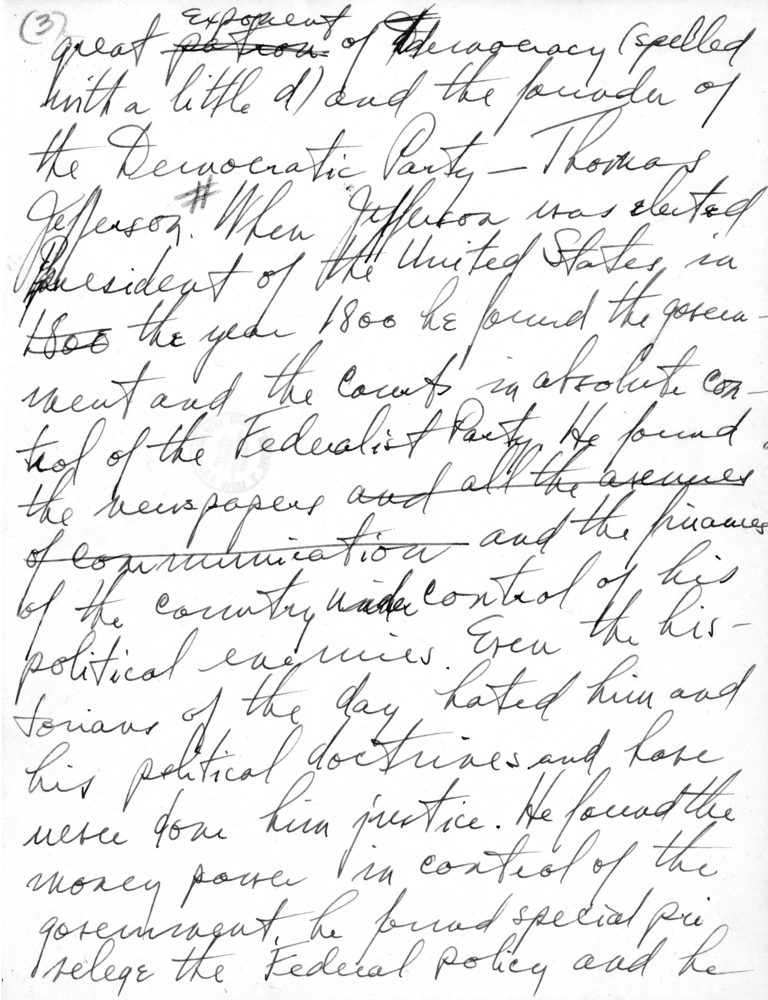 (3)
Exponent
great patron of Democracy (spelled
with a little d) and the founder of
the Democratic Party — Thomas
#
Jefferson. When Jefferson was elected
President of the United States in
1800 the year 1800 he found the govern-
ment and the Courts in absolute con-
trol of the Federalist Party. He found
the newspapers and all the avenues
of communication and the finances
of the country under control of his
political enemies. Even the his-
torians of the day hated him and
his political doctrines and have
never done him justice. He found the
money power in control of the
government, he found special pri
velege the Federal policy and he